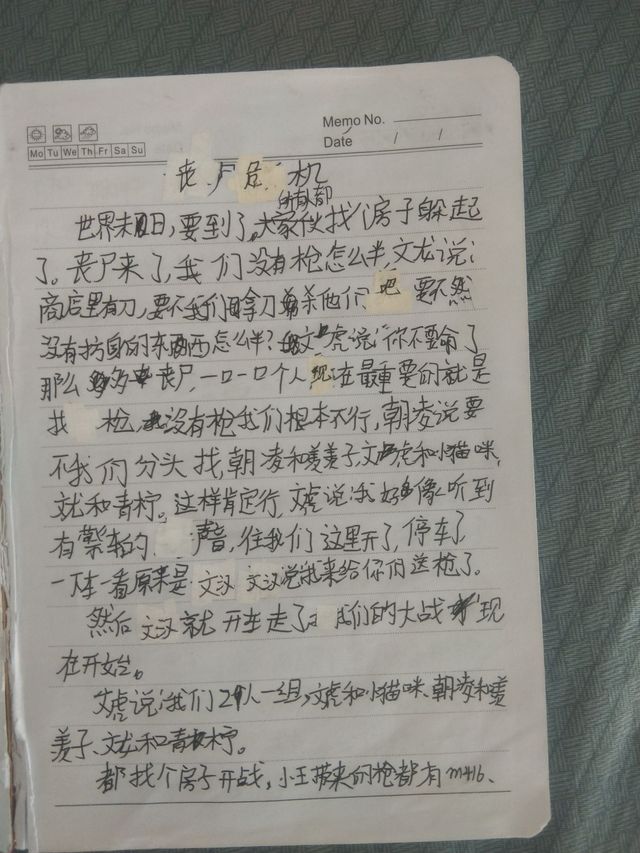 Memo No.
Mo Tu We Th Fr Sa Su
Date / /
丧尸危机
所有人都
世界末日,要到了。大家伙找房子躲起
了。丧尸来了,我们没有枪怎么半,文龙说:
商店里有刀,要不我们拿刀杀他们吧 要不然
没有抗身的东西怎么样?文虎说:你不要命了
那么多丧尸,一口一口个人现在最重要的就是
找枪,没有枪我们根本不行,朝凌说要
不我们分头找,朝凌和美子,文虎和小猫咪,
文龙和青柠。这样肯定行,文虎说:我好像听到
有警车的声音,往我们这里开了,停车了
一下车一看原来是文汉 文汉说我来给你们送枪了。
然后文汉就开车走了 我们的大战才现
在开始。
文虎说:我们2个人一组,文虎和小猫咪、朝凌和
美子、文龙和青柠。
都找个房子开战,小王带来的枪都有m416、